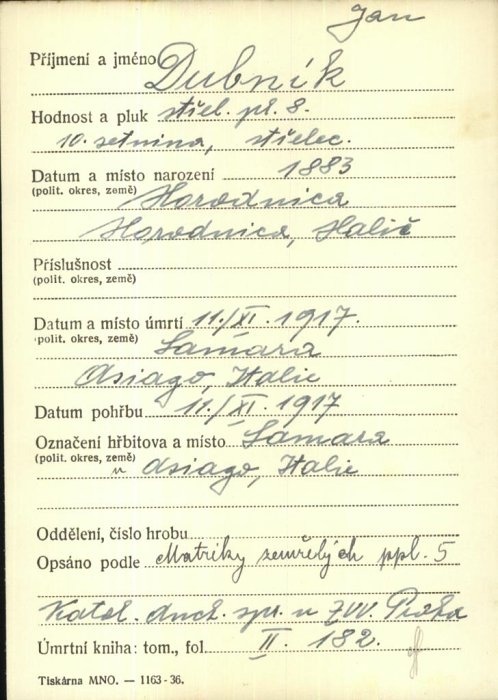 Jan
Příjmení a jméno Dubník
Hodnost a pluk střel. pl. 8.
10. setnina, střelec.
Datum a místo narození 1883
(polit. okres, země) Horodnica
Horodnica, Halič
Příslušnost
(polit. okres, země)
Datum a místo úmrtí 11./XI. 1917.
(polit. okres, země) Samara
Asiago, Italie
Datum pohřbu 11./XI. 1917
Označení hřbitova a místo Samara
(polit. okres, země) u Asiago, Italie
Oddělení, číslo hrobu
Opsáno podle Matriky zemřelých ppl. 5
Katol. duch. spr. u ZVV Praha
Úmrtní kniha: tom., fol. II. 182.
Tiskárna MNO. — 1163-36.